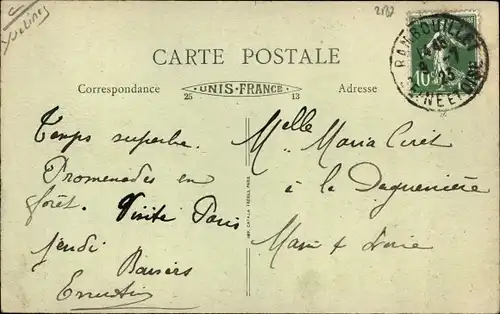 Yvelines
2587
CARTE POSTALE
Correspondance
UNIS-FRANCE
25 13
Adresse
RAMBOUILLET
SEINE ET OISE
25
10
Temps superbe.
Promenades en
forêt. Visite Paris
jeudi
Baisers
Ernestine
Melle Maria
à la Daguenière
Maine & Loire